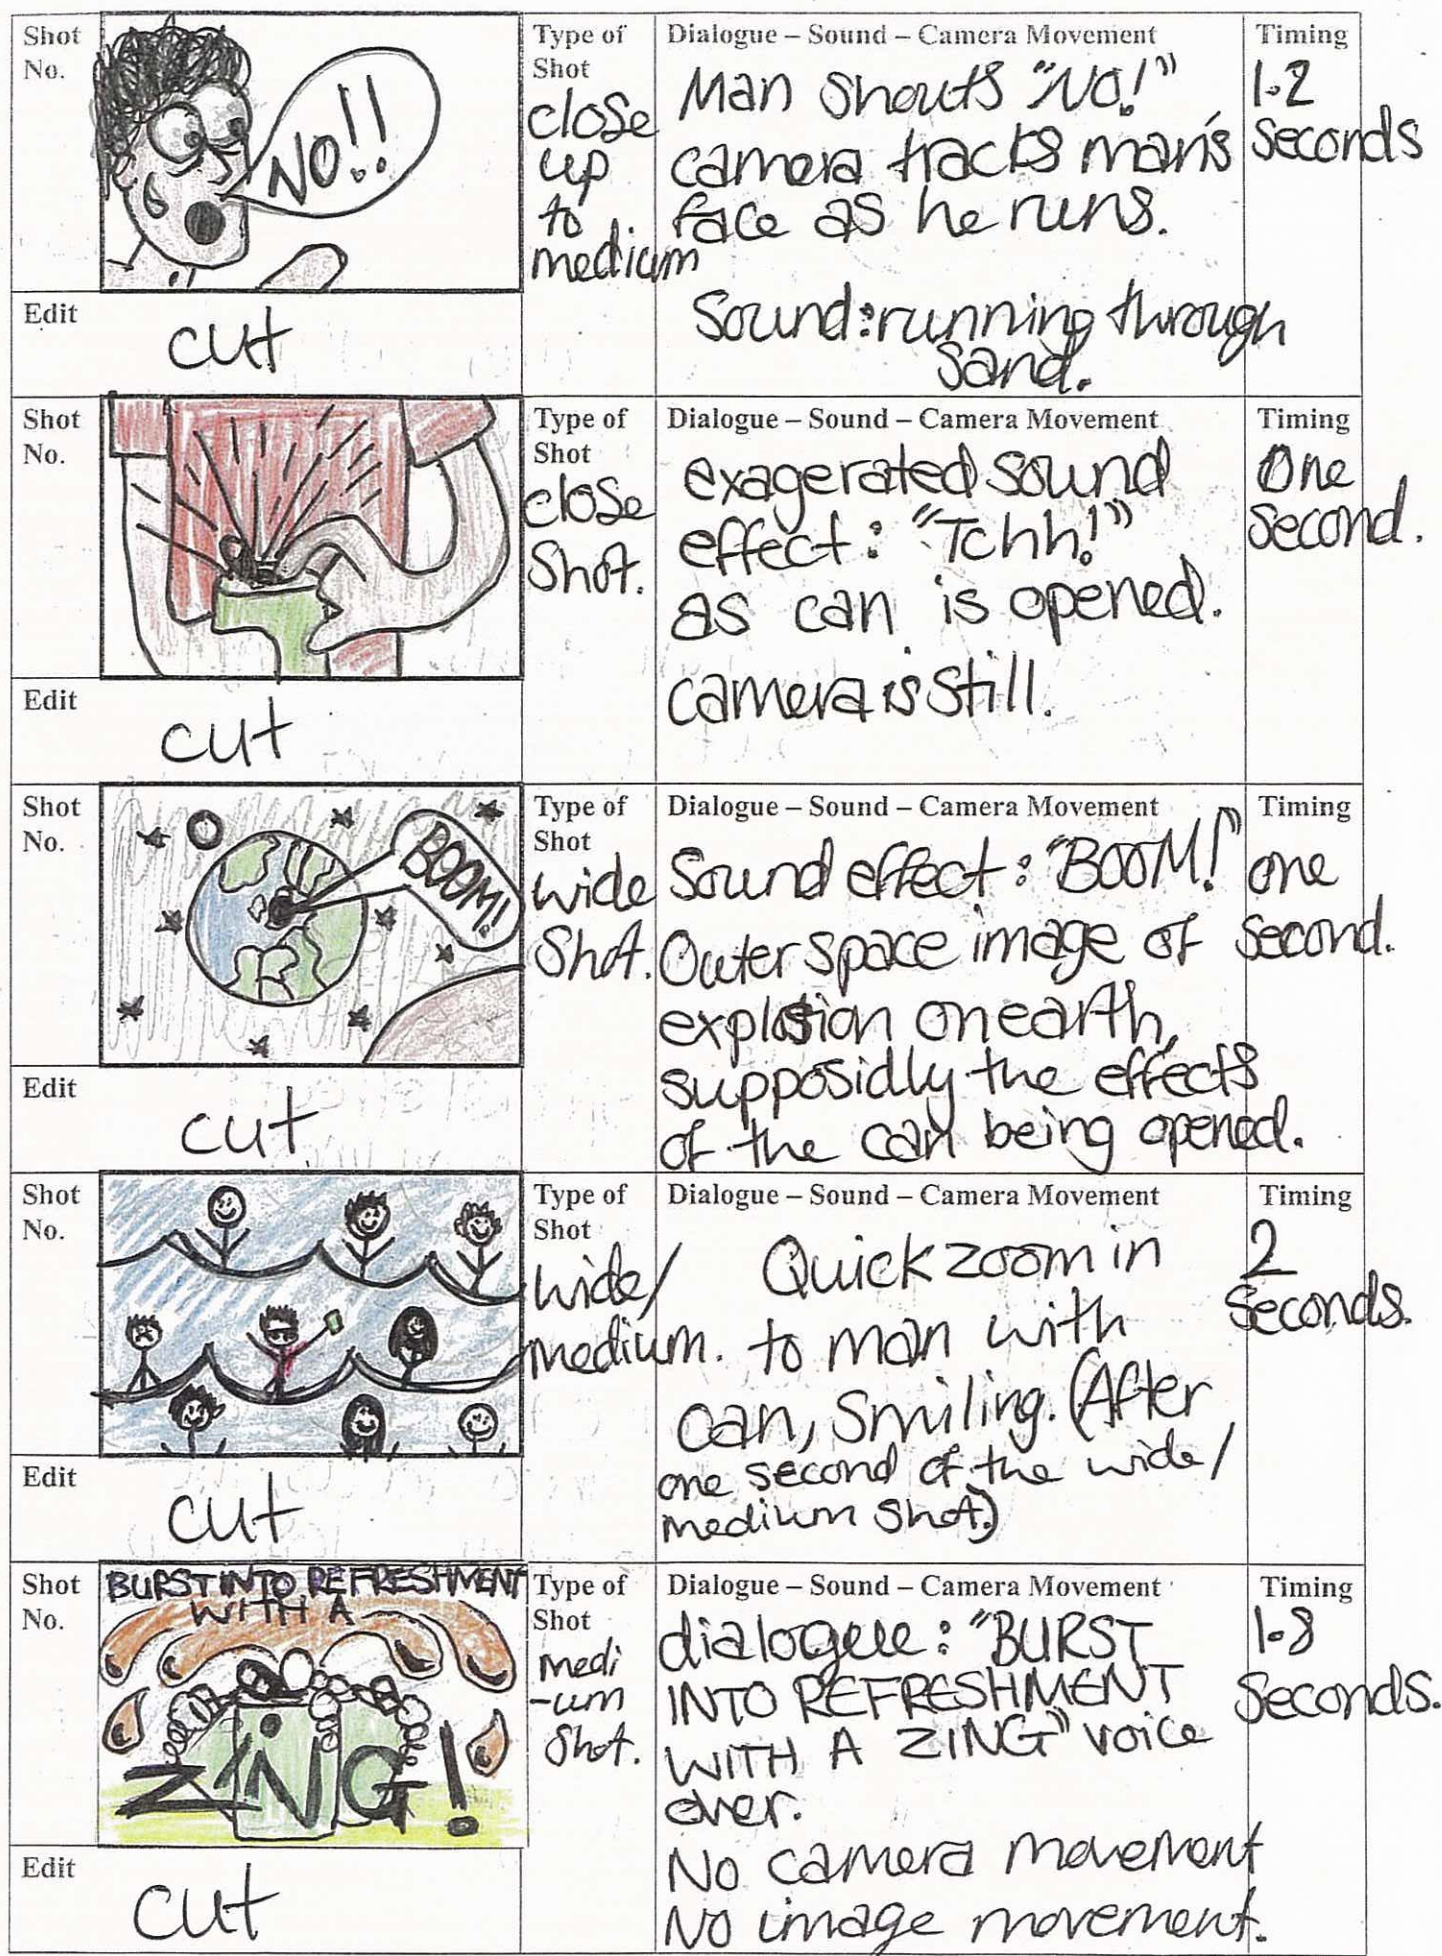 Shot
No.
NO!!
Type of
Shot
close
up
to
medium
Dialogue – Sound – Camera Movement
Man shouts "NO!"
camera tracks man's
face as he runs.
Sound: running through
sand.
Timing
1.2
seconds
Edit
cut
Shot
No.
Type of
Shot
close
Shot.
Dialogue – Sound – Camera Movement
exagerated sound
effect: "Tchh!"
as can is opened.
camera is still.
Timing
One
second.
Edit
cut
Shot
No.
BOOM!
Type of
Shot
wide
Shot.
Dialogue – Sound – Camera Movement
Sound effect: "BOOM!"
Outer space image of
explosion on earth,
supposidly the effects
of the can being opened.
Timing
one
second.
Edit
cut
Shot
No.
Type of
Shot
wide/
medium.
Dialogue – Sound – Camera Movement
Quick zoom in
to man with
can, smiling. (After
one second of the wide/
medium shot.)
Timing
2
seconds.
Edit
cut
Shot
No.
BURST INTO REFRESHMENT
WITH A
ZING!
Type of
Shot
medi
-um
Shot.
Dialogue – Sound – Camera Movement
dialogue: "BURST
INTO REFRESHMENT
WITH A ZING" voice
over.
No camera movement
No image movement.
Timing
1.8
seconds.
Edit
cut